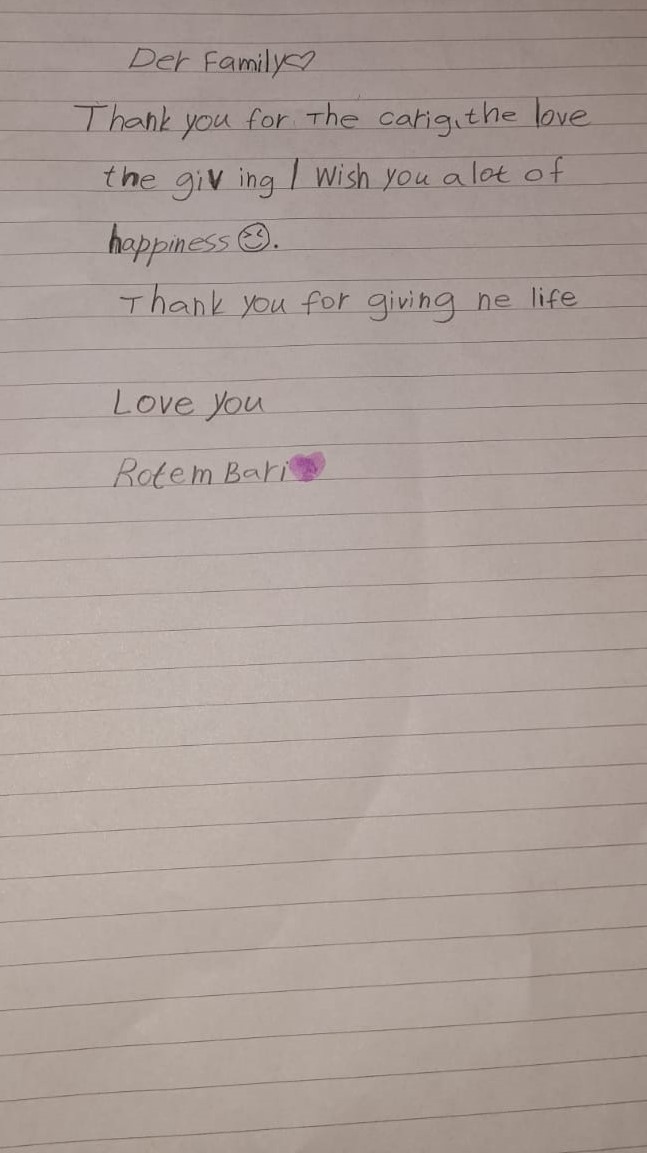 Der Family♡
Thank you for The carig, the love
the giv ing I wish you a lot of
happiness☺.
Thank you for giving ne life
Love you
Rotem Bari💜